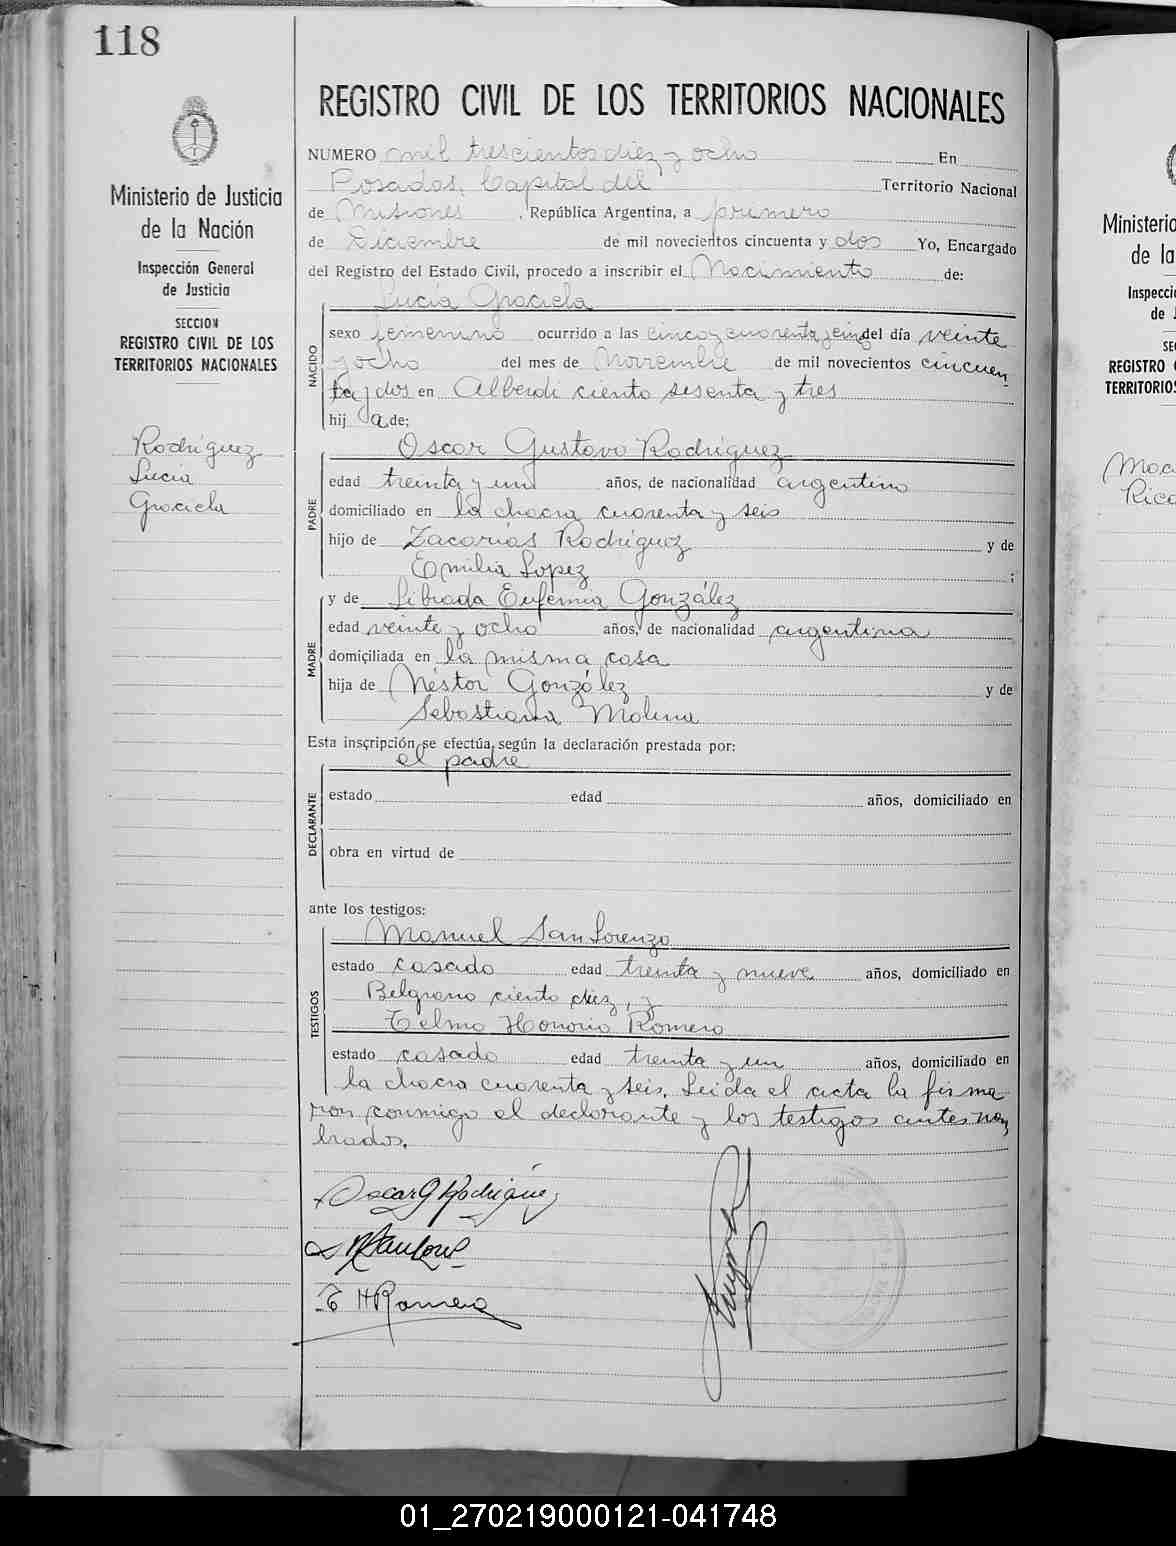 118
Ministerio de Justicia
de la Nación
Inspección General
de Justicia
SECCION
REGISTRO CIVIL DE LOS
TERRITORIOS NACIONALES
Rodríguez
Lucía
Graciela
REGISTRO CIVIL DE LOS TERRITORIOS NACIONALES
NUMERO mil trescientos diez y ocho En
Posadas, Capital del Territorio Nacional
de Misiones, República Argentina, a primero
de Diciembre de mil novecientos cincuenta y dos Yo, Encargado
del Registro del Estado Civil, procedo a inscribir el Nacimiento de:
Lucía Graciela
NACIDO
sexo femenino ocurrido a las cinco y cuarenta y cinco del día veinte
y ocho del mes de Noviembre de mil novecientos cincuen
ta y dos en Alberdi ciento sesenta y tres
hij a de:
Oscar Gustavo Rodríguez
PADRE
edad treinta y un años, de nacionalidad argentino
domiciliado en la chacra cuarenta y seis
hijo de Zacarías Rodríguez y de
Emilia Lopez ;
y de Librada Eufemia González
MADRE
edad veinte y ocho años, de nacionalidad argentina
domiciliada en la misma casa
hija de Néstor González y de
Sebastiana Molina
Esta inscripción se efectúa según la declaración prestada por:
el padre
DECLARANTE
estado edad años, domiciliado en
obra en virtud de
ante los testigos:
Manuel San Lorenzo
TESTIGOS
estado casado edad treinta y nueve años, domiciliado en
Belgrano ciento diez, y
Telmo Honorio Romero
estado casado edad treinta y un años, domiciliado en
la chacra cuarenta y seis. Leida el acta la firma
ron conmigo el declarante y los testigos antes nom
brados.
Oscar G Rodríguez
T H Romero
Ministerio
de la
Inspecci
de J
SE
REGISTRO
TERRITORIOS
Rica
01_270219000121-041748